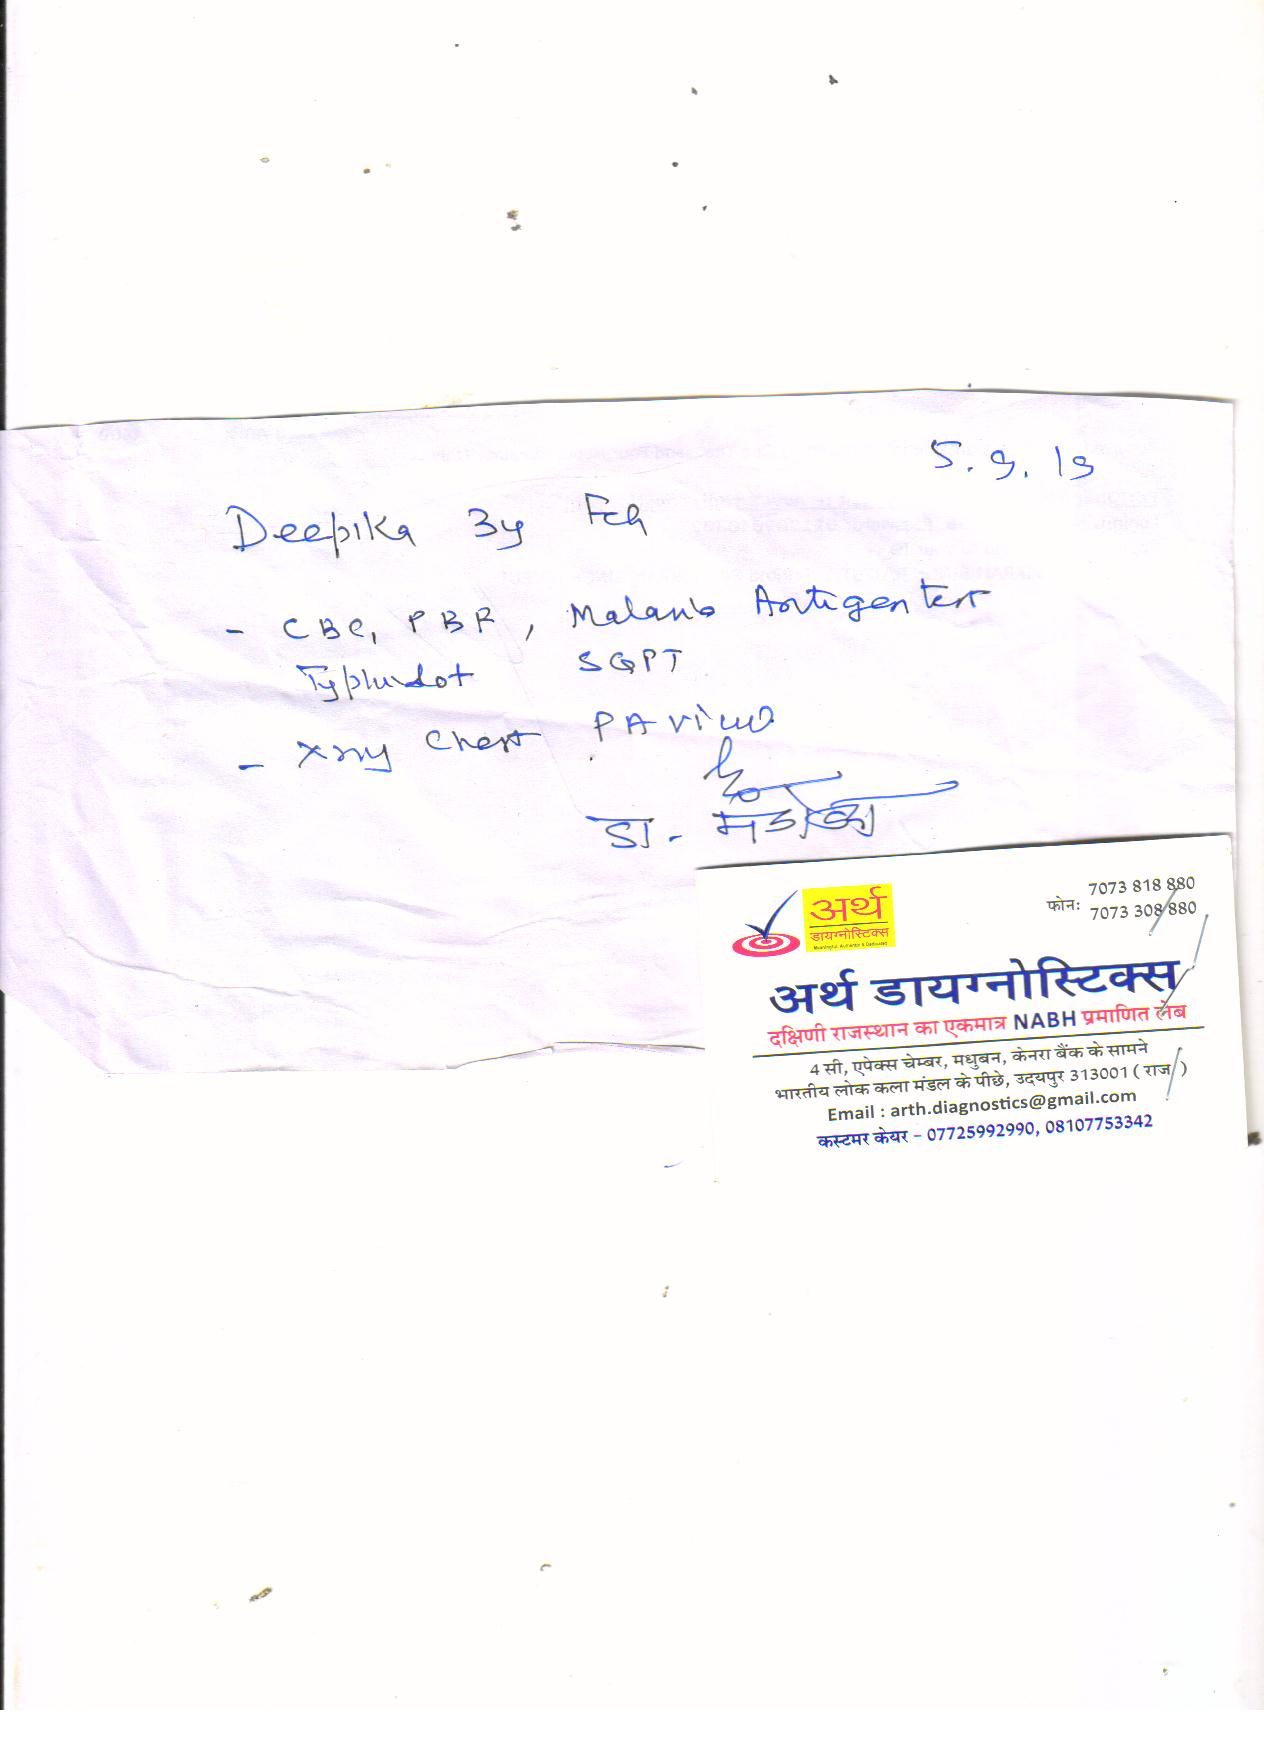 5.9.19
Deepika 3y Fch
- CBC, PBF, Malaria Antigen test
Typhidot SGPT
- Xray Chest PA view
डा.
अर्थ
डायग्नोस्टिक्स
फोन: 7073 818 880
7073 308 880
अर्थ डायग्नोस्टिक्स
दक्षिणी राजस्थान का एकमात्र NABH प्रमाणित लेब
4 सी, एपेक्स चेम्बर, मधुबन, केनरा बैंक के सामने
भारतीय लोक कला मंडल के पीछे, उदयपुर 313001 ( राज )
Email : arth.diagnostics@gmail.com
कस्टमर केयर – 07725992990, 08107753342